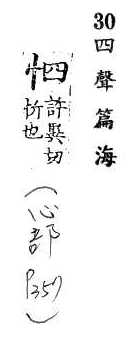 30 四聲篇海
怬
許異切
忻也
(心部 P357)